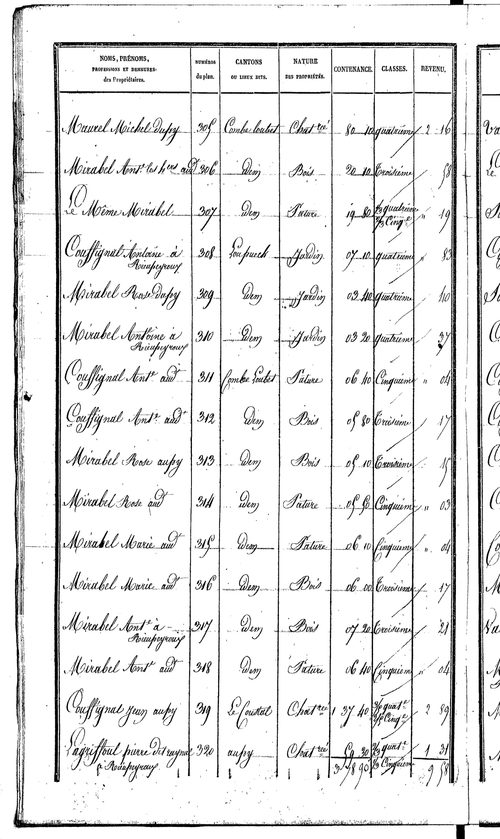 NOMS, PRÉNOMS, PROFESSIONS ET DEMEURES des Propriétaires. NUMÉROS du plan. CANTONS OU LIEUX DITS. NATURE DES PROPRIÉTÉS. CONTENANCE. CLASSES. REVENU.
Maurel Michel dupy 305 Combe loubet Chat.rée 80 10 quatrième 2 16
Mirabel Ant.e les h.ers aud.t 306 idem Bois 20 10 Troisieme " 58
Le Même Mirabel 307 idem Pature 19 80 2/3 quatrieme 1/3 Cinq.e " 19
Couffignal Antoine à Rieupeyroux 308 Lou puech Jardin 07 10 quatrieme " 83
Mirabel Rose dupy 309 idem Jardin 03 40 Quatrieme 40
Mirabel Antoine à Rieupeyroux 310 idem Jardin 03 20 Quatrieme 37
Couffignal Ant.e aud.t 311 Combe Loubet Pature 06 40 Cinquieme " 04
Couffignal Ant.e aud.t 312 idem Bois 05 80 Troisieme 17
Mirabel Rose aupy 313 idem Bois 05 10 Troisieme 15
Mirabel Rose aud.t 314 idem Pature 05 50 Cinquieme " 03
Mirabel Marie aud.t 315 idem Pature 06 10 Cinquieme " 04
Mirabel Marie aud.t 316 idem Bois 06 00 Troisieme 17
Mirabel Ant.e à Rieupeyroux 317 idem Bois 07 20 Troisieme 21
Mirabel Ant.e aud.t 318 idem Pature 06 40 Cinquieme " 04
Couffignal Jean aupy 319 Le Coustal Chat.rée 1 37 40 quat.e Cinq.e 2 89
Lagriffoul pierre dit raynal à Rieupeyroux 320 aupy Chat.rée 59 30 quat.e Cinquieme 1 31
3 78 90 9 58